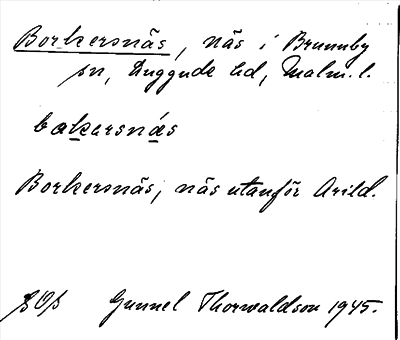 Borkersnäs, näs i Brunnby
sn, Luggude hd, Malm. l.
bakarsnás
Borkersnäs, näs utanför Arild.
Gunnel Thorwaldson 1945.